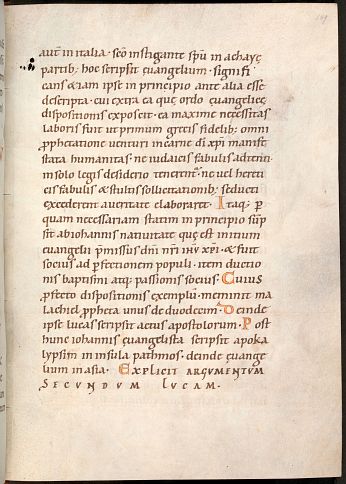 aut in italia · sco instigante spu in achaye
partib; hoc scripsit euangelium · signifi
cans etiam ipse in principio ante alia esse
descripta · cui extra ea que ordo euangelice
dispositionis exposcit · ea maxime necessitas
laboris fuit ut primum grecis fidelib; omni
prophetatione uenturi in carne di xpi manifes
tata humanitas · ne iudaicis fabulis adtenti
in solo legis desiderio tenerent · ne uel hereti
cis fabulis & stultis sollicitationib; seducti
excederent aueritate elaboraret · Itaq; p
quam necessariam statim in principio sup
sit abiohannis natiuitate que est initium
euangelii pmissus dni nri ihu xpi · & fuit
socius ad pfectionem populi · item ductio
nis baptismi atq; passionis socius · Cuius
pfecto dispositionis exemplu meminit ma
lachiel ppheta unus de duodecim · Deinde
ipse lucas scripsit actus apostolorum · Post
hunc iohannis euangelista scripsit apoka
lypsim in insula pathmos · deinde euange
lium in asia · EXPLICIT ARGUMENTUM
SECUNDUM LUCAM ·